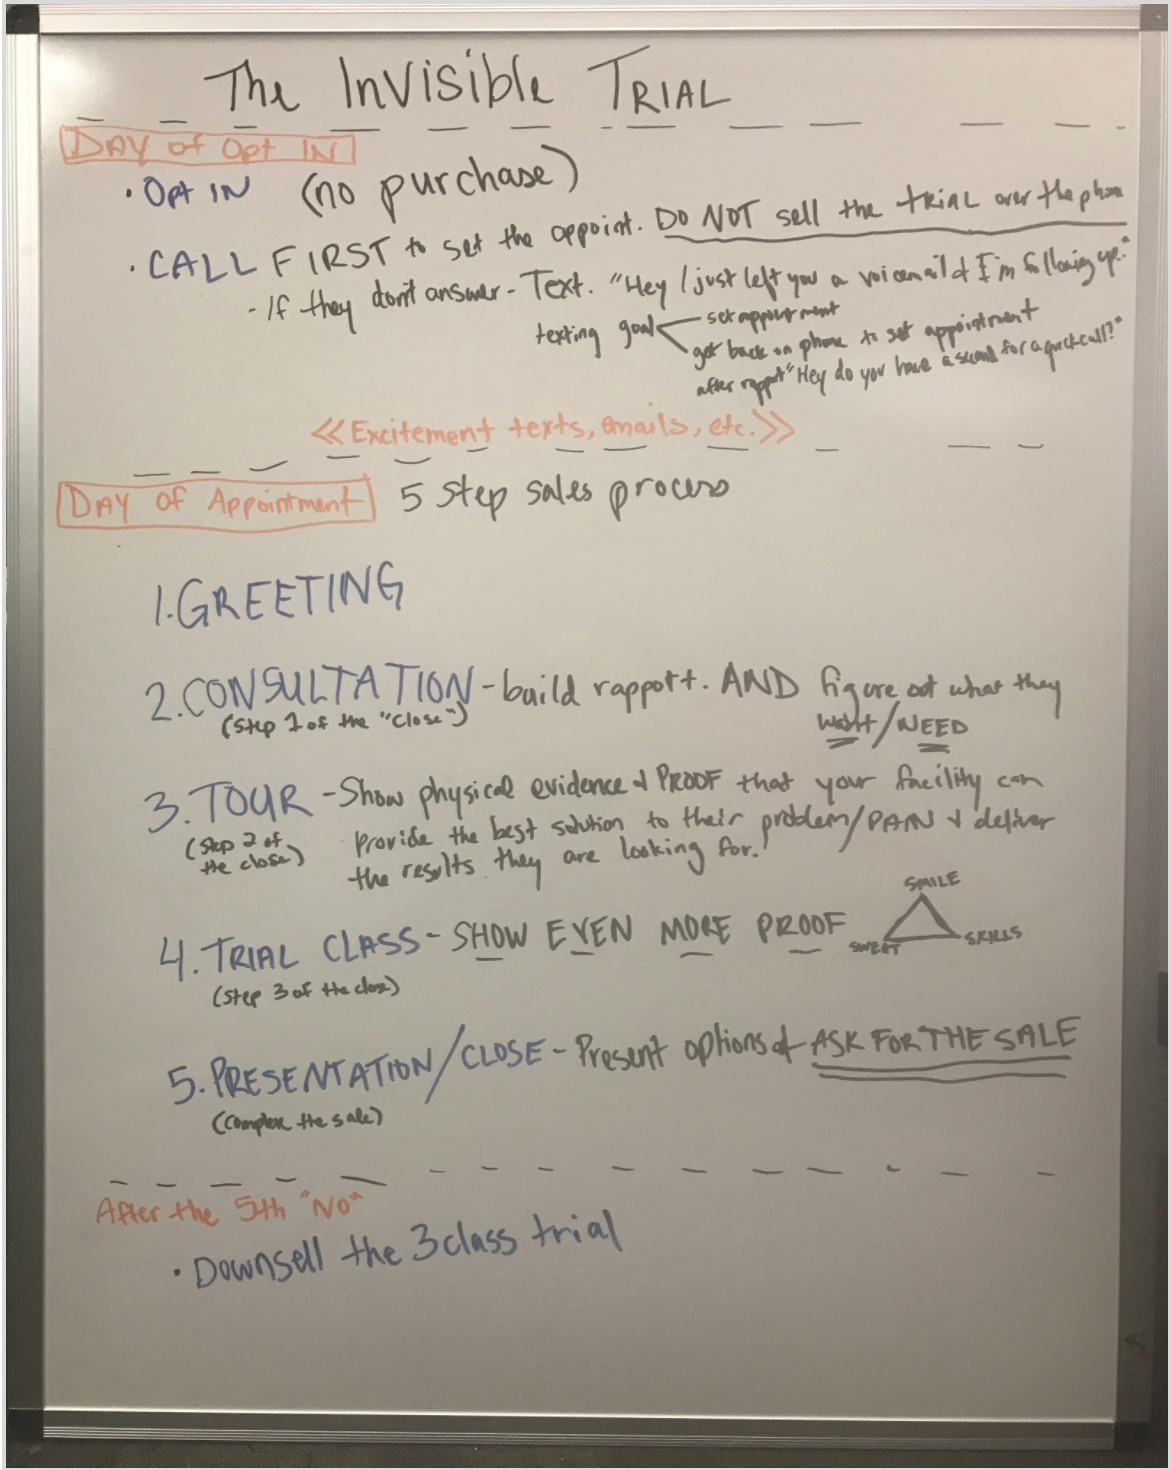 The Invisible TRIAL
DAY of Opt IN
• Opt IN (no purchase)
• CALL FIRST to set the appoint. DO NOT sell the TRIAL over the phone
- If they don't answer - Text. "Hey I just left you a voicemail & I'm following up."
texting goal
set appointment
get back on phone to set appointment
after rapport "Hey do you have a second for a quick call?"
<<Excitement texts, emails, etc.>>
DAY of Appointment 5 step sales process
1. GREETING
2. CONSULTATION - build rapport. AND figure out what they
(Step 1 of the "Close") want/NEED
3. TOUR - Show physical evidence & PROOF that your facility can
(Step 2 of provide the best solution to their problem/PAIN & deliver
the close) the results they are looking for.
SMILE
4. TRIAL CLASS - SHOW EVEN MORE PROOF SWEAT SKILLS
(Step 3 of the close)
5. PRESENTATION/CLOSE - Present options & ASK FOR THE SALE
(Complete the sale)
After the 5th "No"
• Downsell the 3 class trial